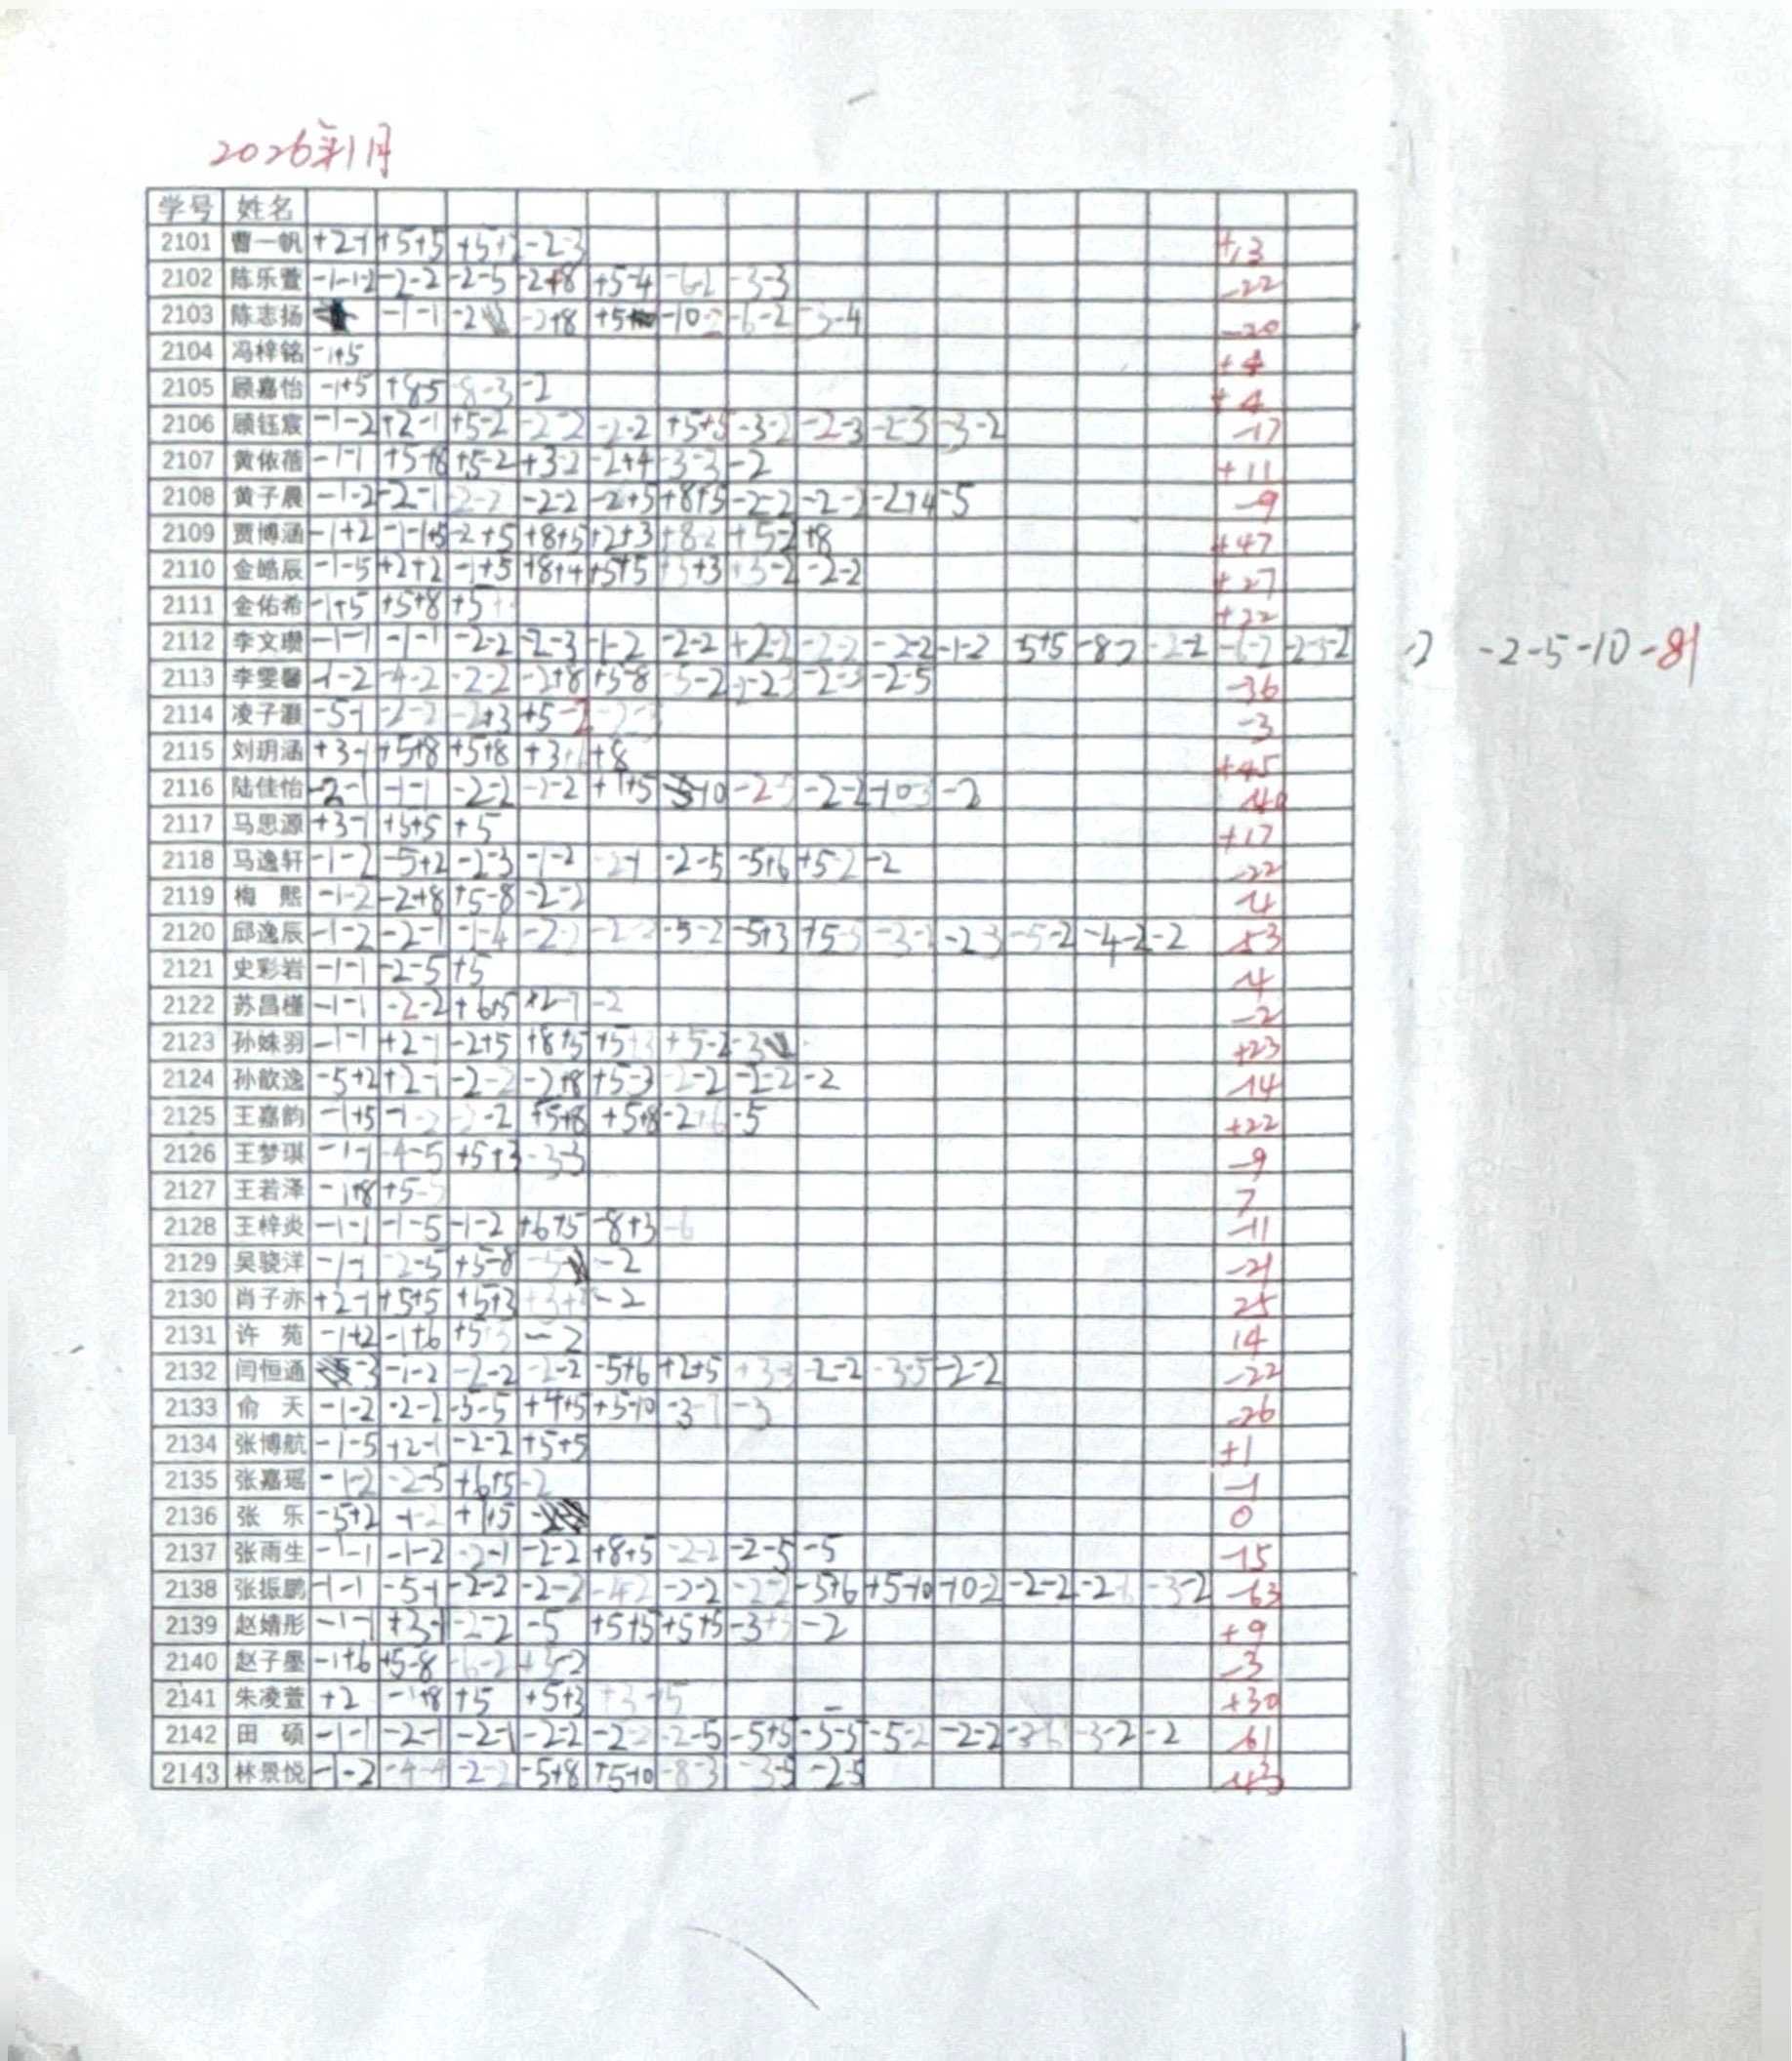 2026年1月
学号 姓名
2101 曹一帆 +2-1 +5+5 +5+2 -2-3 +13
2102 陈乐萱 -1-1-2 -2-2 -2-5 -2+8 +5-4 -6-2 -3-3 -22
2103 陈志扬 -1-1 -2 -2+8 +5 -10-2 -6-2 -3-4 -20
2104 冯梓铭 -1+5 +4
2105 顾嘉怡 -1+5 +8+5 -8-3 -2 +4
2106 顾钰宸 -1-2 +2-1 +5-2 -2-2 -2-2 +5+5 -3-2 -2-3 -2-3 -3-2 -17
2107 黄依蓓 -1-1 +5+8 +5-2 +3-2 -2+4 -3-3 -2 +11
2108 黄子晨 -1-2 -2-1 -2-2 -2-2 -2+5 +8+5 -2-2 -2-2 -2+4 -5 -9
2109 贾博涵 -1+2 -1-1+5 -2+5 +8+5 +2+3 +8-2 +5-2 +8 +47
2110 金皓辰 -1-5 +2+2 -1+5 +8+4 +5+5 +3+3 +3-2 -2-2 +27
2111 金佑希 -1+5 +5+8 +5 +22
2112 李文瓒 -1-1 -1-1 -2-2 -2-3 -1-2 -2-2 +2-2 -2-2 -2-2 -1-2 +5+5 -8-2 -2-2 -6-2 -2-3-2 -2 -2-5-10 -81
2113 李雯馨 -1-2 -4-2 -2-2 -2+8 +5-8 -5-2 -2-23 -2-3 -2-5 -36
2114 凌子灏 -5-1 -2-2 -2+3 +5-2 -2-3 -3
2115 刘玥涵 +3-1 +5+8 +5+8 +3+6 +8 +45
2116 陆佳怡 -2-1 -1-1 -2-2 -2-2 +1+5 -10 -2-3 -2-2 -10-3 -2 -40
2117 马思源 +3-1 +5+5 +5 +17
2118 马逸轩 -1-2 -5+2 -2-3 -1-2 -2-1 -2-5 -5+6 +5-2 -2 -22
2119 梅熙 -1-2 -2+8 +5-8 -2-2 -4
2120 邱逸辰 -1-2 -2-1 -1-4 -2-2 -2-2 -5-2 -5+3 +5-5 -3-2 -2-3 -5-2 -4-2 -2 -53
2121 史彩岩 -1-1 -2-5 +5 -4
2122 苏昌槿 -1-1 -2-2 +6+5 +2-7 -2 -2
2123 孙姝羽 -1-1 +2-1 -2+5 +8+5 +5+3 +5-2 -3 +23
2124 孙歆逸 -5+2 +2-1 -2-2 -2+8 +5-3 -2-2 -2-2 -2 -14
2125 王嘉韵 -1+5 -1-2 -2-2 +5+8 +5+8 -2+6 -5 +22
2126 王梦琪 -1-1 -4-5 +5+3 -3-3 -9
2127 王若泽 -1+8 +5-5 7
2128 王梓炎 -1-1 -1-5 -1-2 +6+5 -8+3 -6 -11
2129 吴骁洋 -1-1 -2-5 +5-8 -5 -2 -21
2130 肖子亦 +2-1 +5+5 +5+3 +3+ -2 25
2131 许苑 -1+2 -1+6 +5+5 -2 14
2132 闫恒通 -3 -1-2 -2-2 -2-2 -5+6 +2+5 +3-3 -2-2 -3-5 -2-2 -22
2133 俞天 -1-2 -2-2 -3-5 +4+5 +5-10 -3-7 -3 -26
2134 张博航 -1-5 +2-1 -2-2 +5+5 +1
2135 张嘉瑶 -1-2 -2-5 +6+5 -2 -1
2136 张乐 -5+2 -1-2 +1+5 0
2137 张雨生 -1-1 -1-2 -2-1 -2-2 +8+5 -2-2 -2-5 -5 -15
2138 张振鹏 -1-1 -5-1 -2-2 -2-2 -4-2 -2-2 -2-2 -5+6 +5-10 -10-2 -2-2 -2-6 -3-2 -63
2139 赵婧彤 -1-1 +3-1 -2-2 -5 +5+5 +5+5 -3+3 -2 +9
2140 赵子墨 -1+6 +5-8 -6-2 +5-2 -3
2141 朱凌萱 +2 -1+8 +5 +5+3 +3+5 - +30
2142 田硕 -1-1 -2-1 -2-1 -2-2 -2-2 -2-5 -5+5 -5-5 -5-2 -2-2 -3-6 -3-2 -2 -61
2143 林景悦 -1-2 -4-4 -2-2 -5+8 +5-10 -8-3 -3-5 -2-5 -43